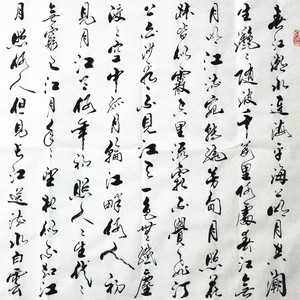 春江潮水連海平海上明月共潮
生灧々隨波千萬里何處春江無
月明江流宛轉繞芳甸月照花
林皆似霰空里流霜不覺飛汀
上白沙看不見江天一色無纖塵
皎々空中孤月輪江畔何人初
見月江月何年初照人人生代々
無窮已江月年々望相似不知江
月照何人但見長江送流水白雲